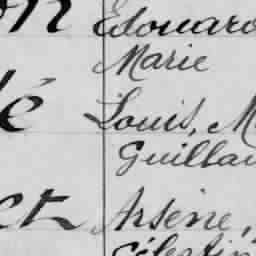 on Edouard
Marie
é Louis, M
Guillau
et Arsène,
Célestin